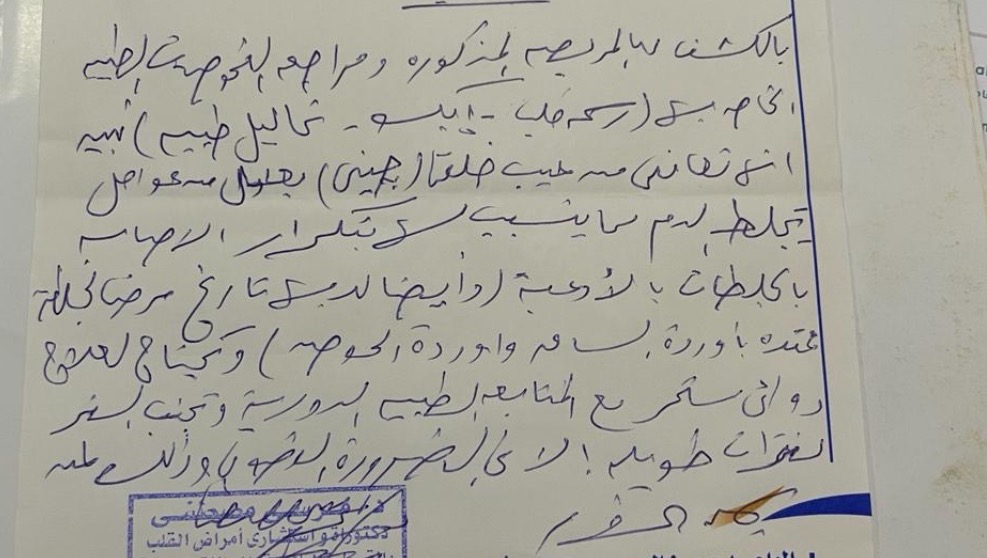 بالكشف على المريضه المذكوره ومراجعه الفحوصات الطبيه
الخاصه بها (رسم قلب - إيكو - تحاليل طبيه) تبين
انها تعانى من عيب خلقى (جينى) بعامل من عوامل
تجلط الدم مما يتسبب لها بتكرار الاصابه
بالجلطات بالأوعية (وأيضا لديها تاريخ مرضى لجلطة
ممتده بأوردة الساق وأوردة الحوض) وتحتاج لعلاج
دوائى مستمر مع المتابعه الطبيه الدورية وتجنب السفر
لفترات طويله إلا فى الضرورة القصوى وذلك لمن
يهمه الأمر
دكتوراه و استشارى أمراض القلب